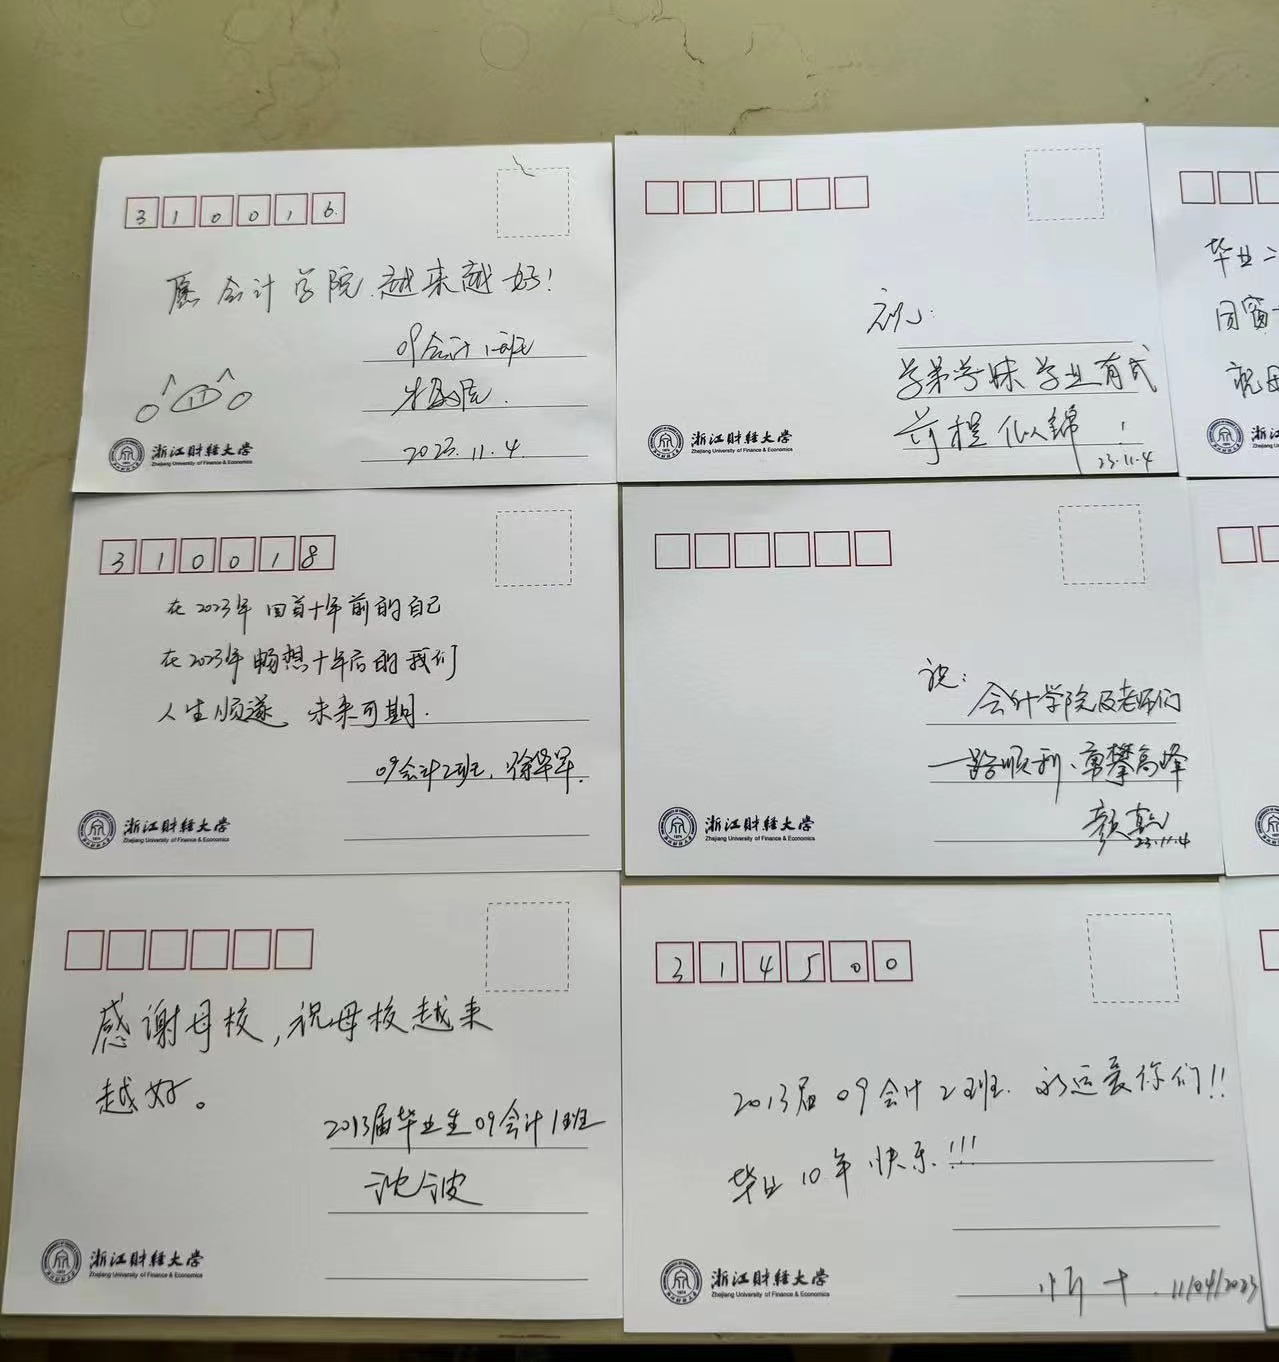 310016
愿会计学院越来越好!
09会计1班
2023.11.4
浙江财经大学
Zhejiang University of Finance & Economics
祝:
学弟学妹学业有成
前程似锦!
23.11.4
浙江财经大学
Zhejiang University of Finance & Economics
毕业二
同窗
祝母
310018
在2023年回首十年前的自己
在2023年畅想十年后的我们
人生顺遂 未来可期.
09会计2班, 徐华军.
浙江财经大学
Zhejiang University of Finance & Economics
祝:
会计学院及老师们
一路顺利、勇攀高峰
颜
23.11.4
浙江财经大学
Zhejiang University of Finance & Economics
感谢母校,祝母校越来
越好。
2013届毕业生09会计1班
沈波
浙江财经大学
Zhejiang University of Finance & Economics
314500
2013届09会计2班. 永远爱你们!!
毕业10年快乐!!!
11/04/2023
浙江财经大学
Zhejiang University of Finance & Economics